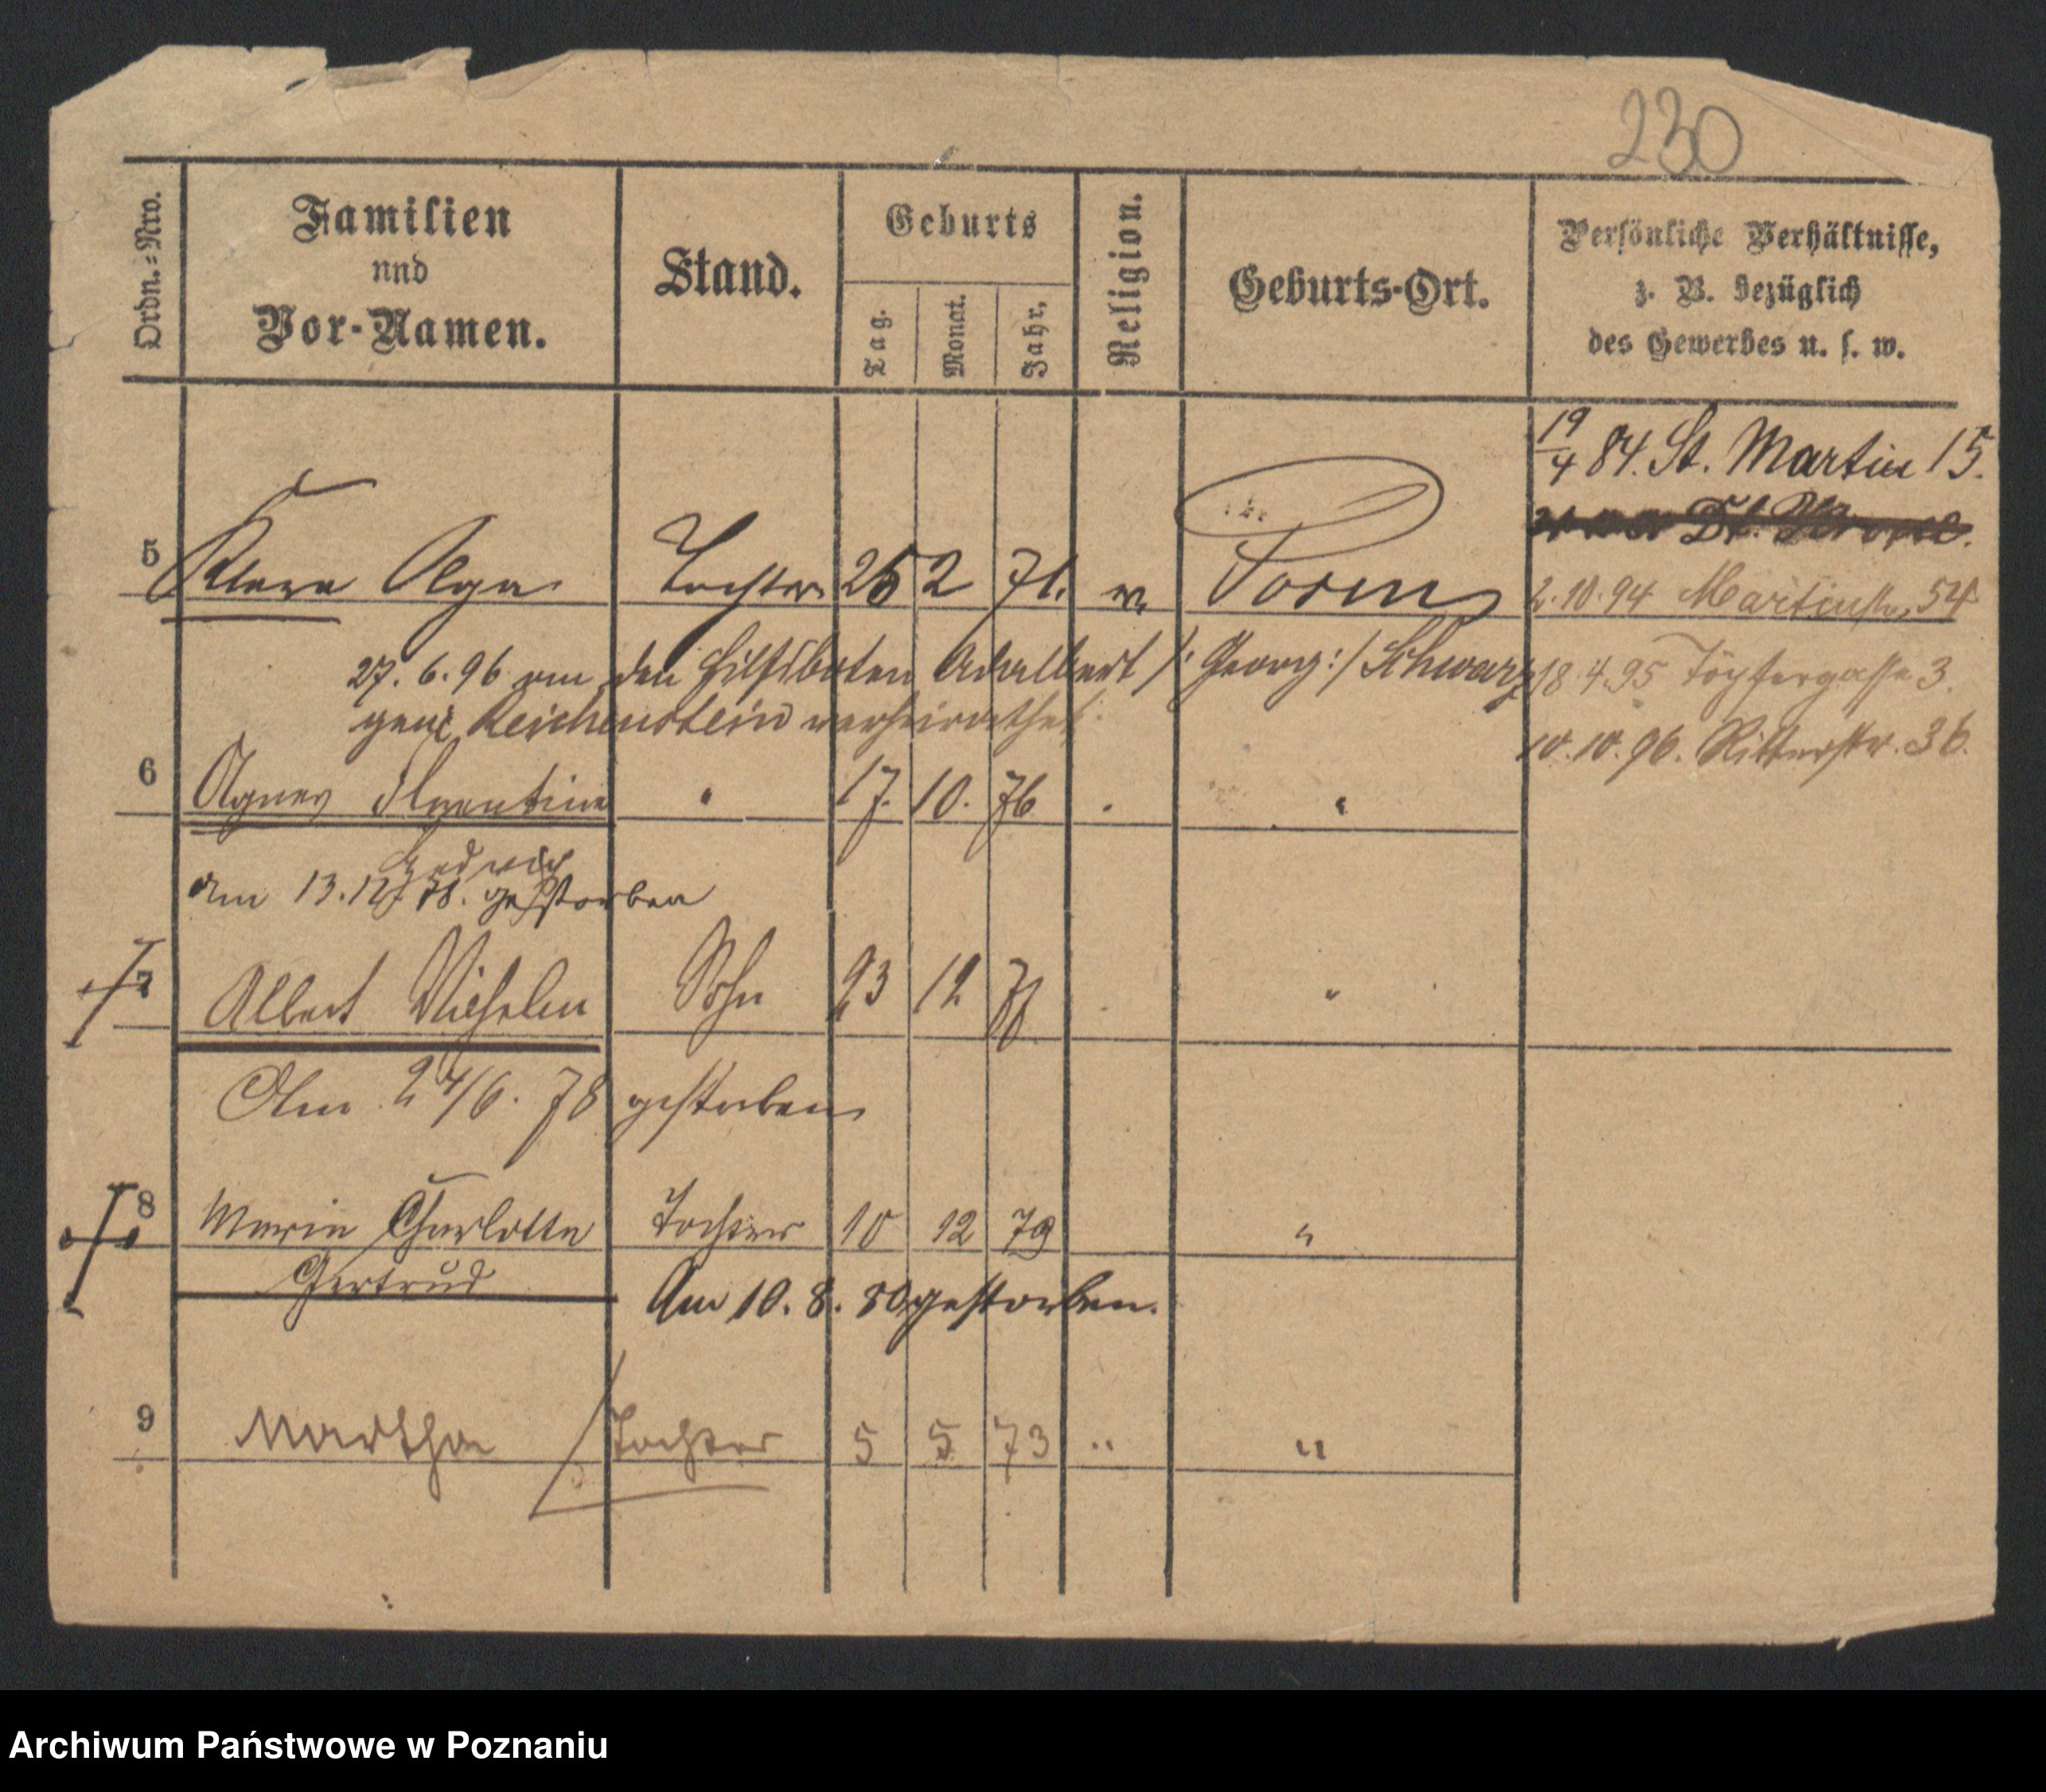 230
Ordn.=Nro.
Familien
und
Vor-Namen.
Stand.
Geburts
Tag.
Monat.
Jahr.
Religion.
Geburts-Ort.
Persönliche Verhältnisse,
z. B. bezüglich
des Gewerbes u. s. w.
19/4 84. St. Martin 15.
5 Klara Olga Tochter 25 2 71. Posen
2.10.94 Martinstr. 54
27. 6. 96 den Hilfsboten Adalbert /: Georg :/ Schwarz
18.4.95 Töpfergasse 3.
gent Reichenstein verheirathet.
10.10.96. Ritterstr. 36.
6 Agnes 17. 10. 76 "
Hedwig
am 13.12. 78. gestorben
7 Albert Wilhelm Sohn 23 12 "
Am 24/6. 78 gestorben
8 Maria Charlotte Tochter 10 12 79 "
Gertrud
Am 10. 8. 80 gestorben.
9 Martha Tochter 5 5 73 " "
Archiwum Państwowe w Poznaniu